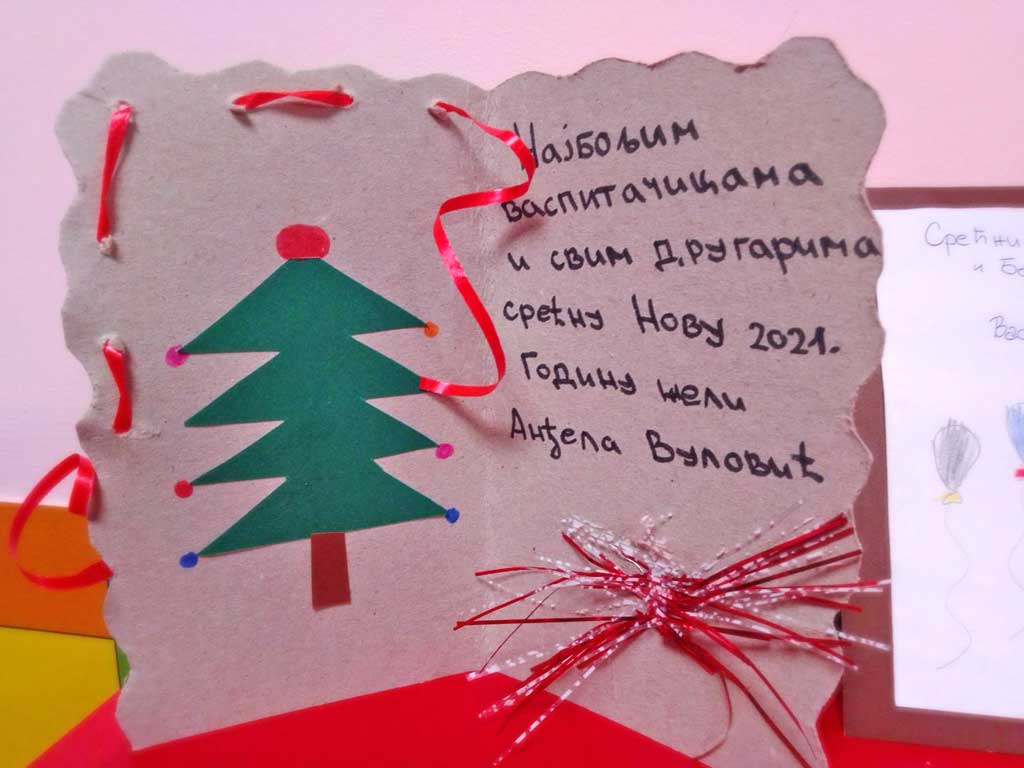 Најбољим
васпитачицама
и свим другарима
срећну Нову 2021.
Годину жели
Анђела Вуловић